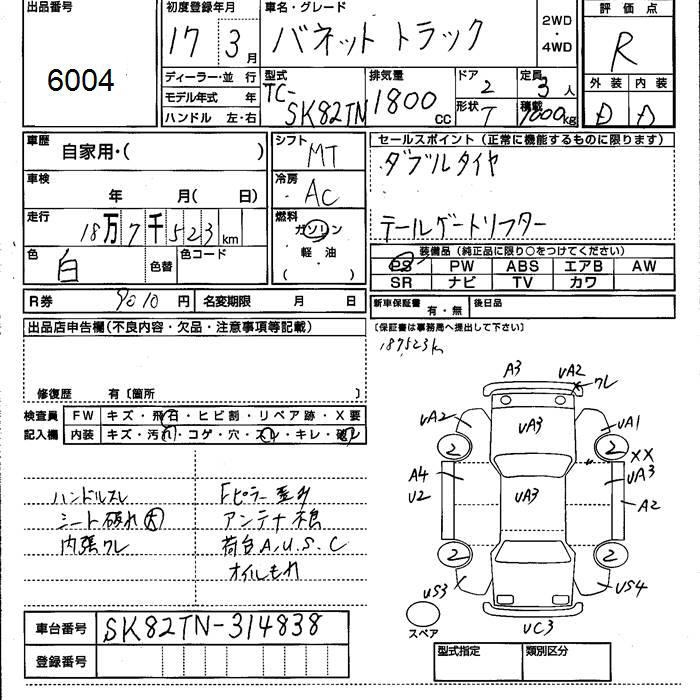 出品番号
6004
初度登録年月
17 3月
車名・グレード
バネット トラック
2WD
・
4WD
評価点
R
外装 内装
D D
ディーラー・並行
モデル年式 年
ハンドル 左・右
型式
TC-
SK82TN
排気量
1800 cc
ドア 2
形状 T
定員 3人
積載 1000kg
車歴 自家用・( )
車検 年 月( 日)
走行 18万7千523km
色 白
色替
色コード
シフト MT
冷房 AC
燃料
ガソリン
軽油
( )
セールスポイント(正常に機能するものに限ります)
ダブルタイヤ
テールゲートリフター
装備品(純正品に限り○をつけてください)
PS PW ABS エアB AW
SR ナビ TV カワ
R券 9010円
名変期限 月 日
新車保証書 有・無
後日品
(保証書は事務局へ提出して下さい)
187,523km
出品店申告欄(不良内容・欠品・注意事項等記載)
修復歴 有〔箇所 〕
検査員
記入欄
FW キズ・飛石・ヒビ割・リペア跡・X要
内装 キズ・汚れ・コゲ・穴・スレ・キレ・破レ
ハンドルスレ
シート破れ大
内張ワレ
アンテナ
荷台A.U.S.C
オイルもれ
A3 UA2
ワレ
UA2 UA3 UA1
2 2
XX
A4 UA3
U2 UA3 A2
2 2
US3 US4
UC3
スペア
車台番号 SK82TN-314838
登録番号
型式指定 類別区分